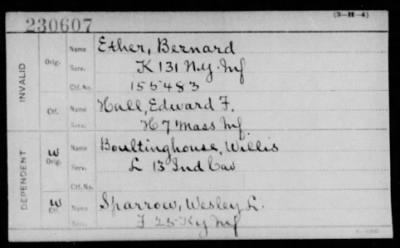 (3-H-4)
230607
INVALID
Orig. Name Ether, Bernard
Serv. K 131 N.Y. Inf
Ctf. No. 155483
Ctf. Name Hall, Edward F.
Serv. H 7 Mass Inf.
DEPENDENT
W Orig. Name Boultinghouse, Willis
Serv. L 13 Ind Cav
Ctf. No.
W Ctf. Name Sparrow, Wesley L.
Serv. F 25 Ky Inf